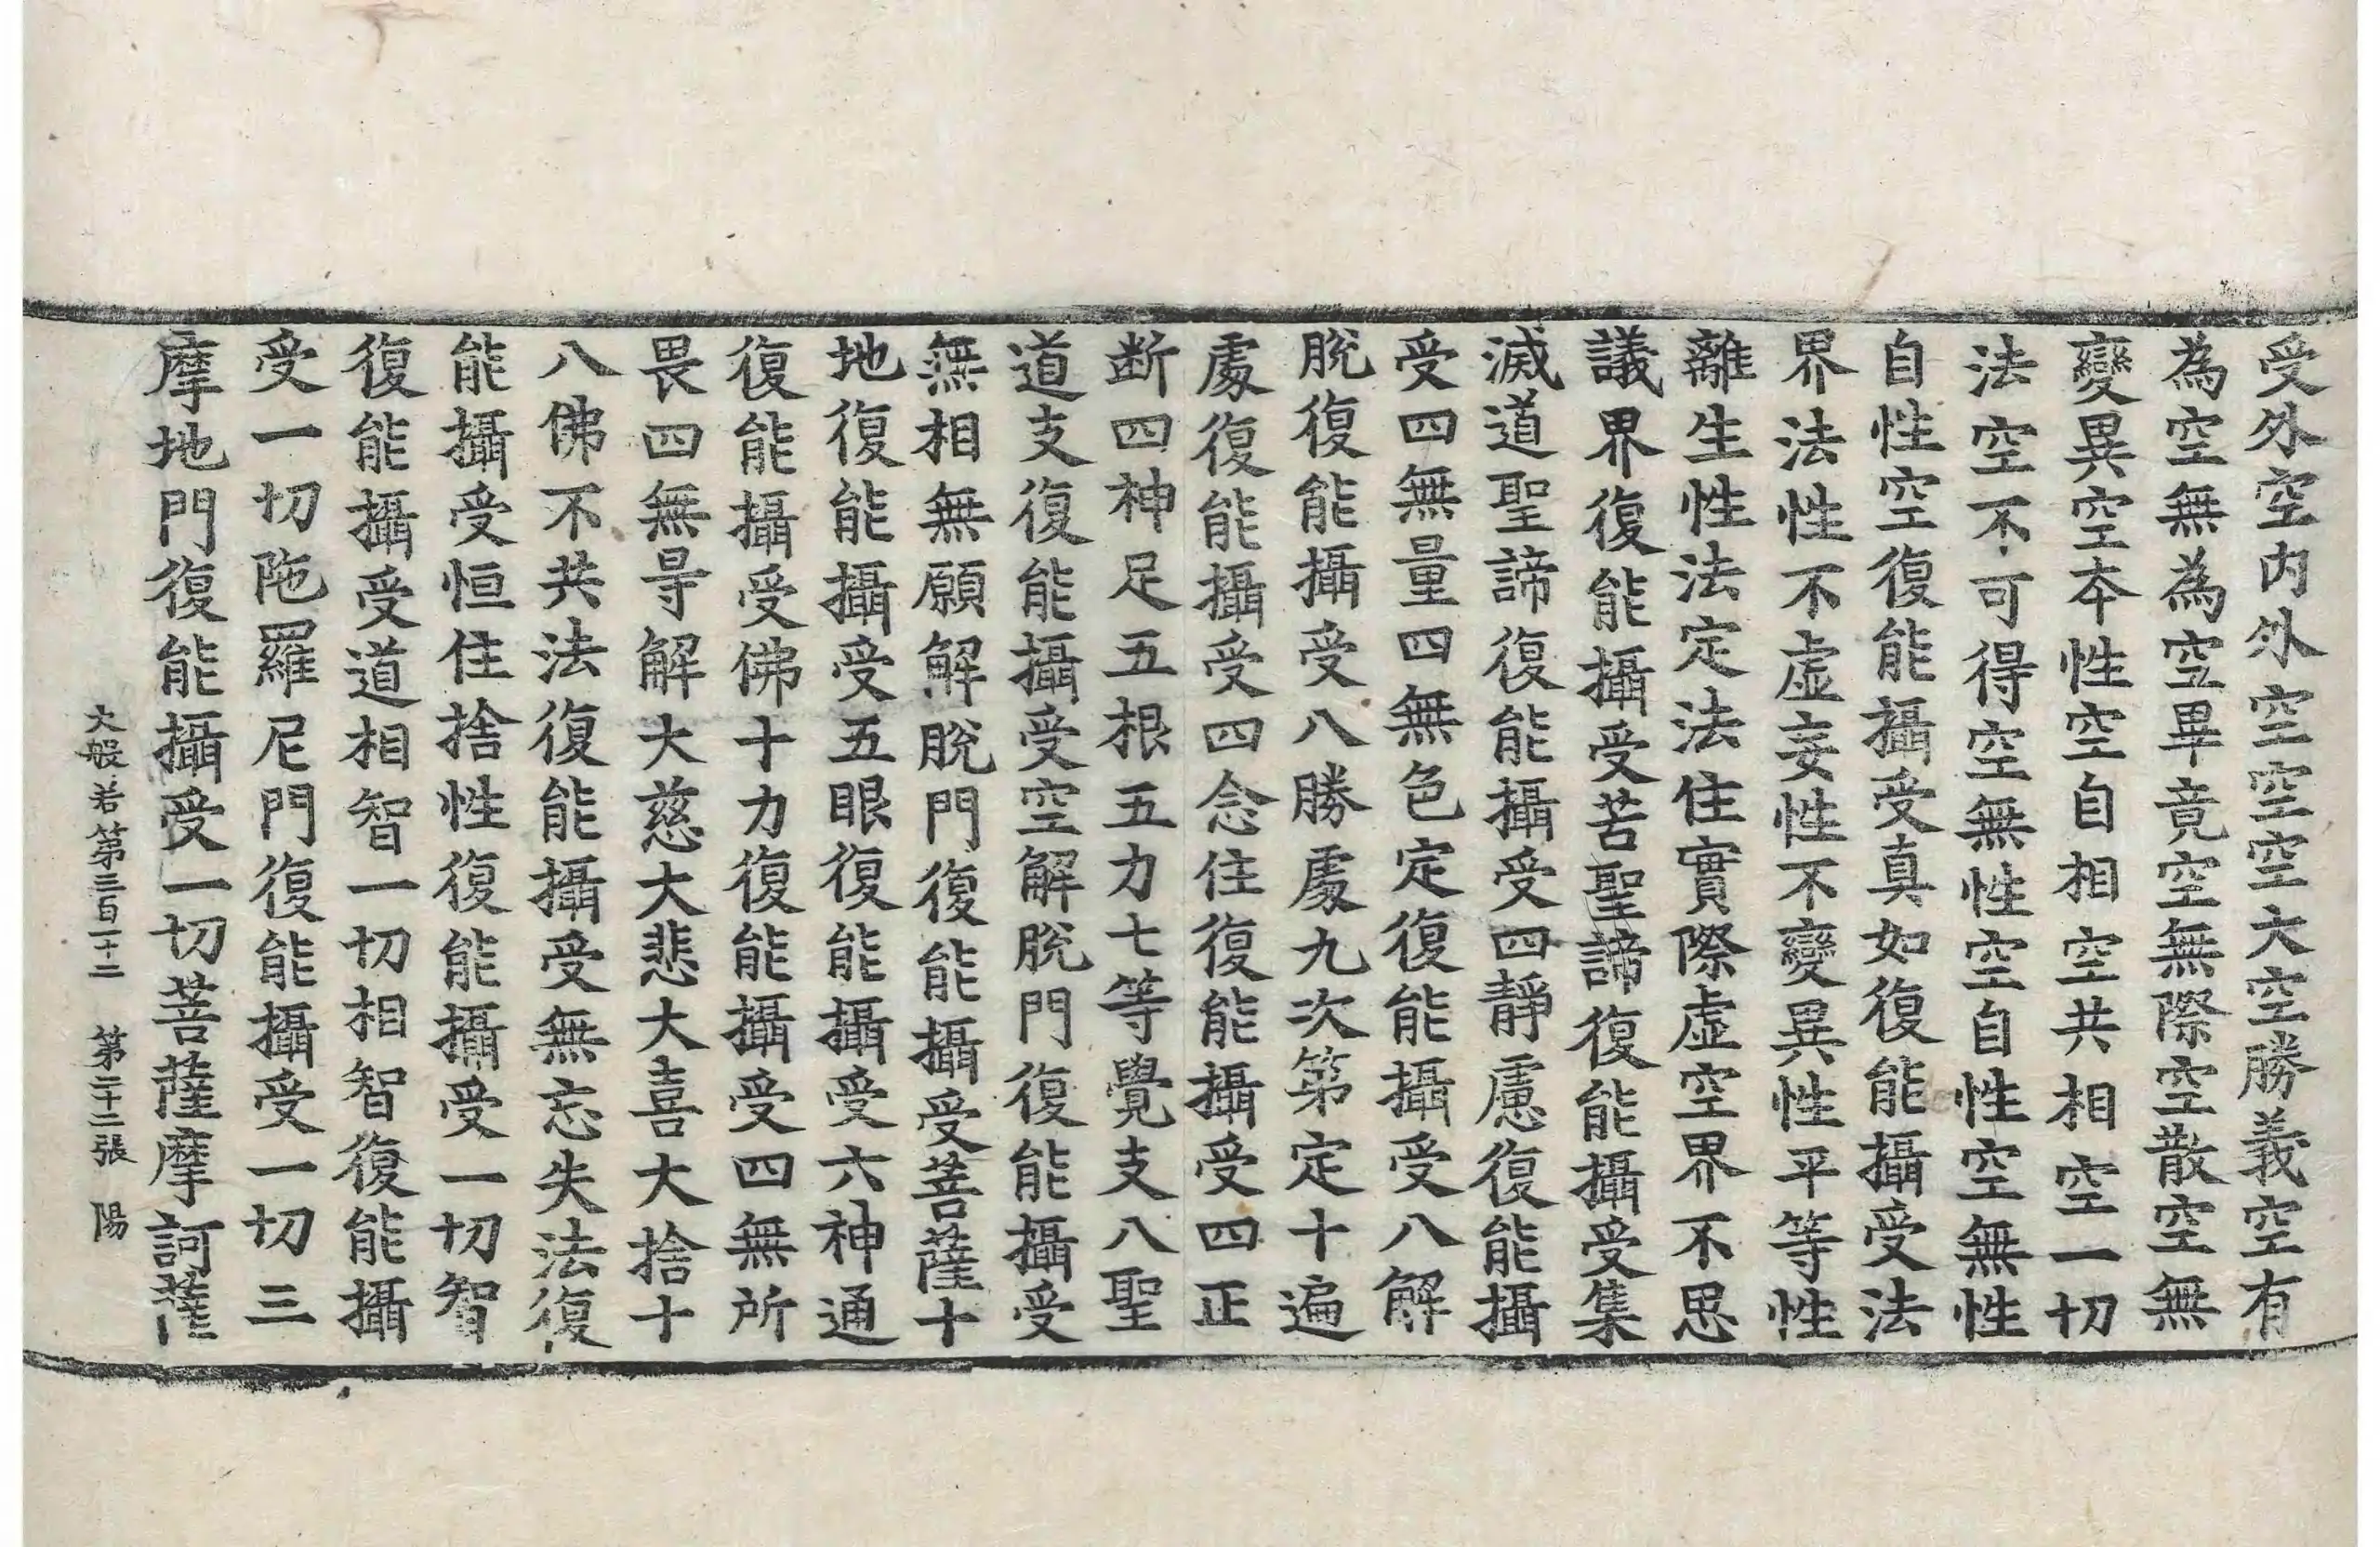 受外空内外空空空大空勝義空有
為空無為空畢竟空無際空散空無
變異空本性空自相空共相空一切
法空不可得空無性空自性空無性
自性空復能攝受真如復能攝受法
界法性不虛妄性不變異性平等性
離生性法定法住實際虛空界不思
議界復能攝受苦聖諦復能攝受集
滅道聖諦復能攝受四靜慮復能攝
受四無量四無色定復能攝受八解
脫復能攝受八勝處九次第定十遍
處復能攝受四念住復能攝受四正
断四神足五根五力七等覺支八聖
道支復能攝受空解脫門復能攝受
無相無願解脫門復能攝受菩薩十
地復能攝受五眼復能攝受六神通
復能攝受佛十力復能攝受四無所
畏四無㝵解大慈大悲大喜大捨十
八佛不共法復能攝受無忘失法復
能攝受恒住捨性復能攝受一切智
復能攝受道相智一切相智復能攝
受一切陁羅尼門復能攝受一切三
摩地門復能攝受一切菩薩摩訶薩
大般若第三百一十二 第二十二張 陽